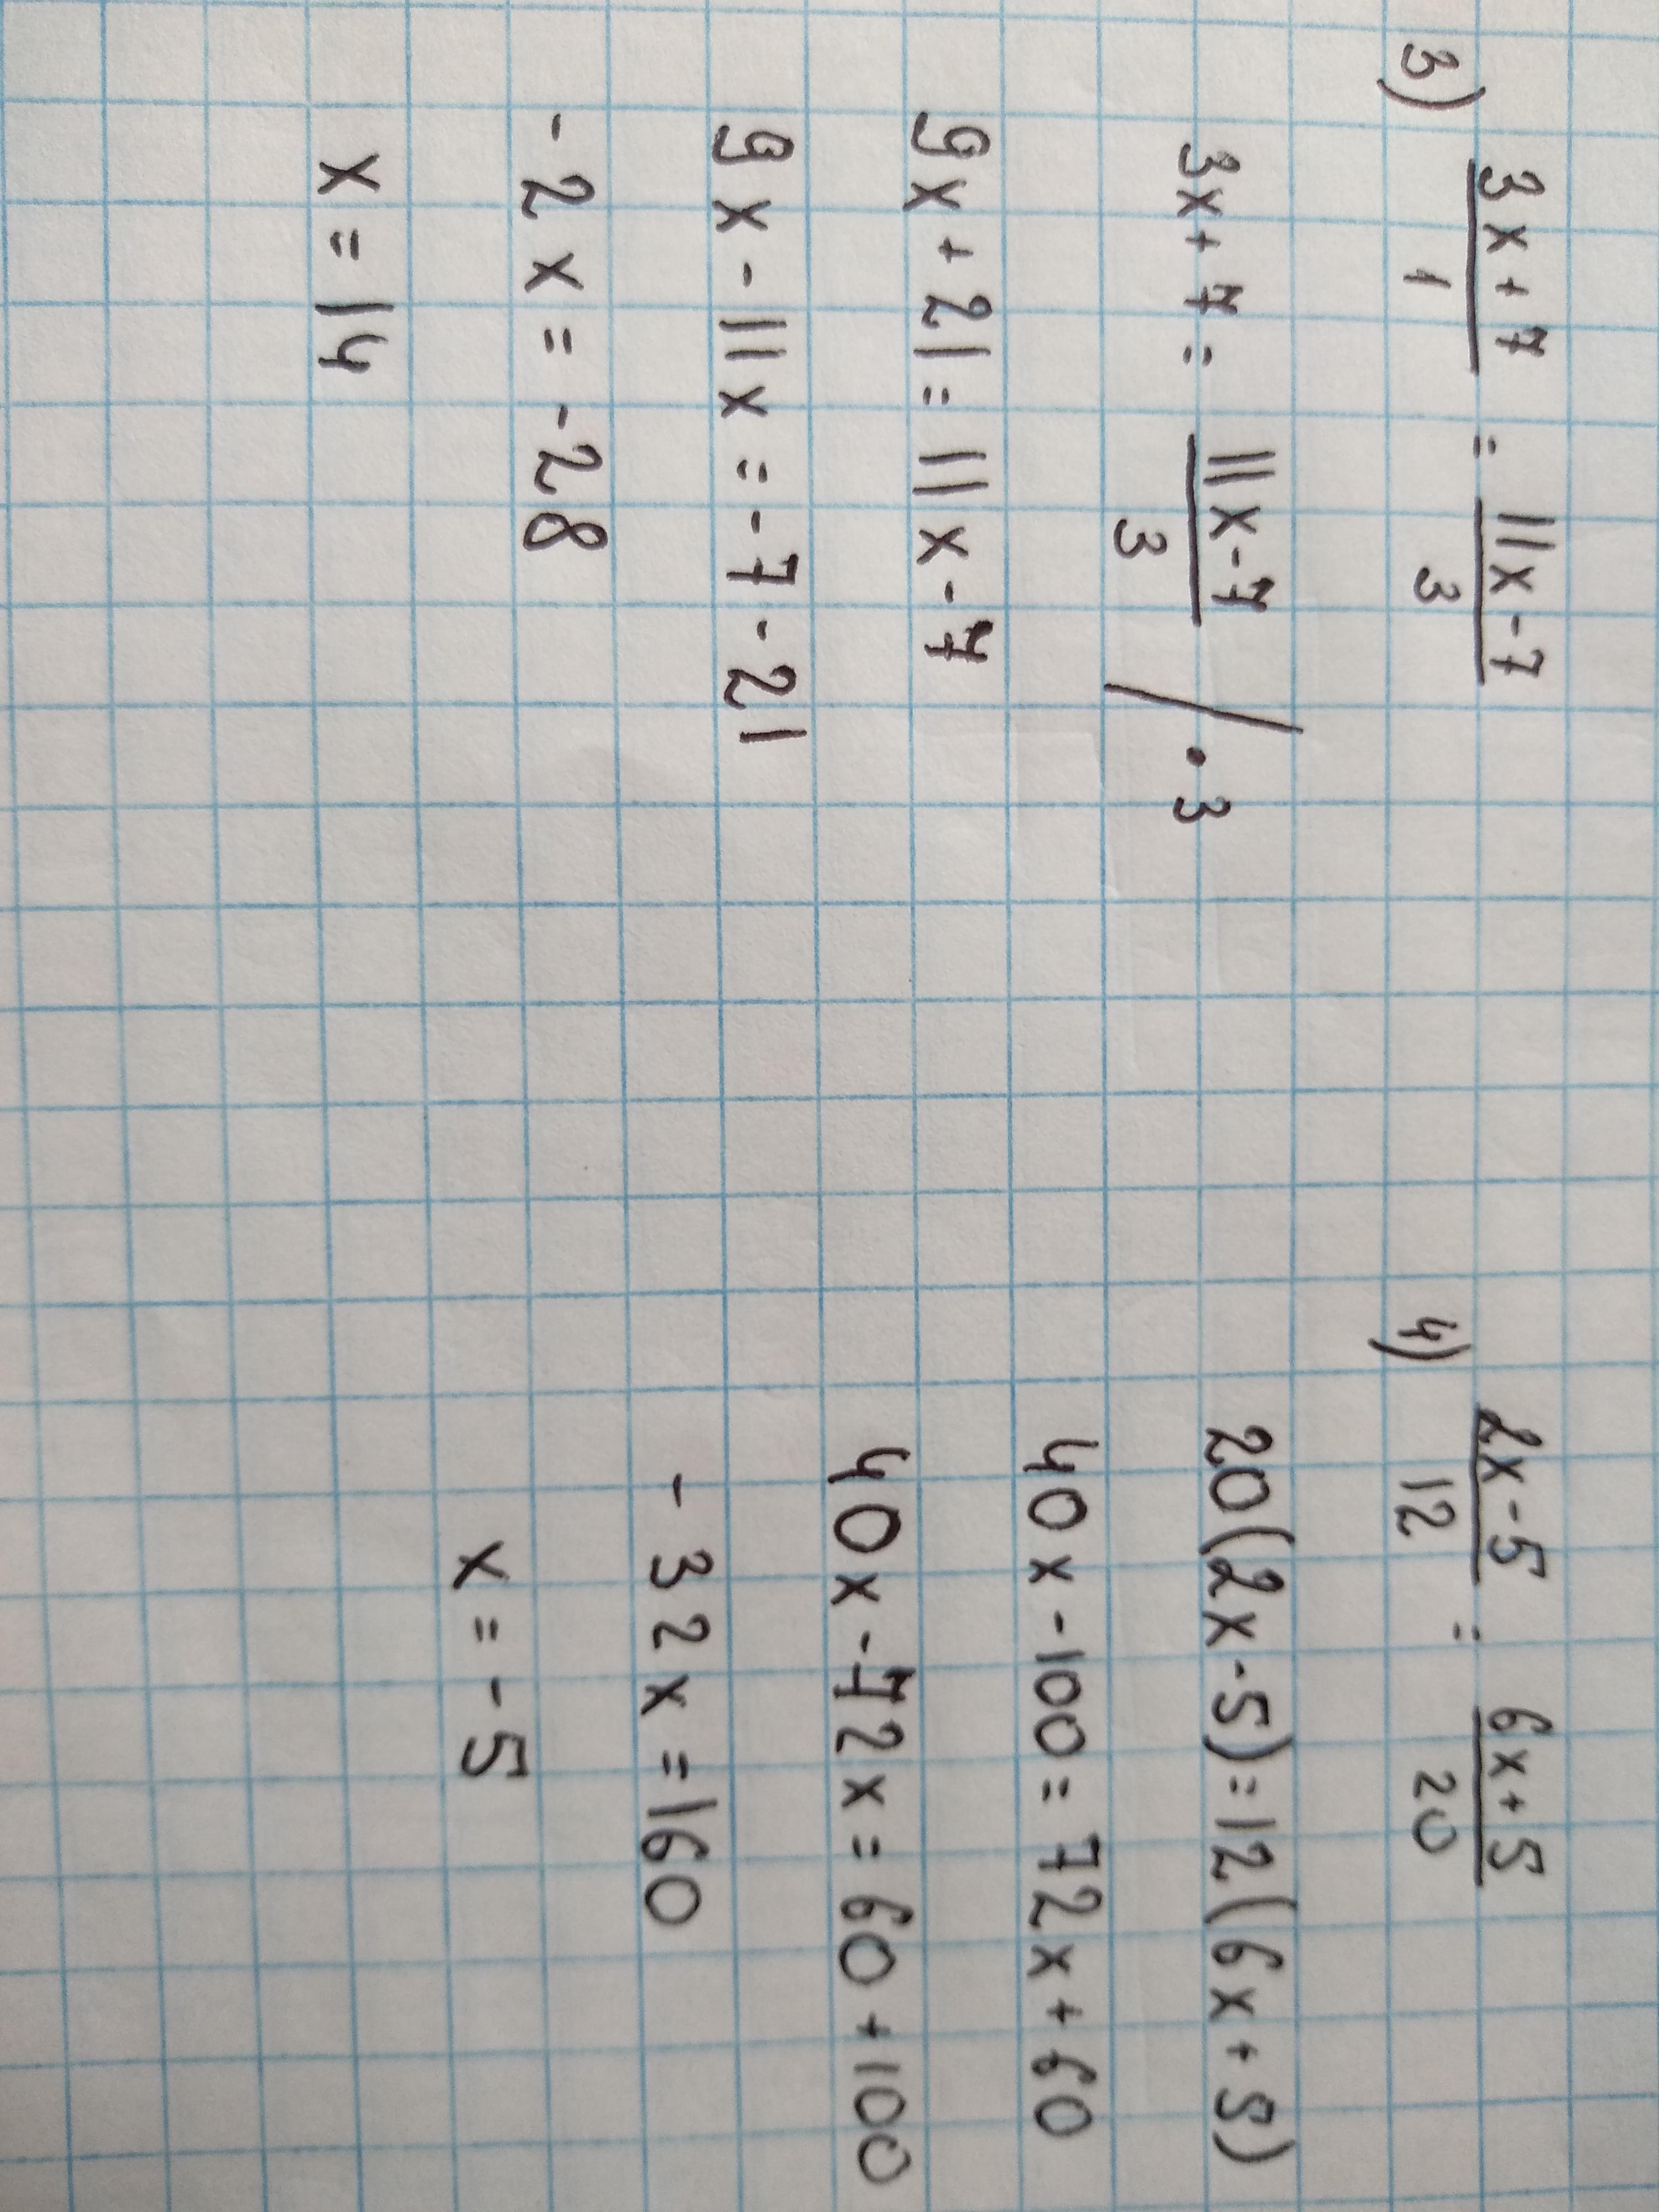 3) (3x+7)/1 = (11x-7)/3
3x+7 = (11x-7)/3 / · 3
9x+21=11x-7
9x-11x=-7-21
-2x=-28
x=14
4) (2x-5)/12 = (6x+5)/20
20(2x-5)=12(6x+5)
40x-100=72x+60
40x-72x=60+100
-32x=160
x=-5